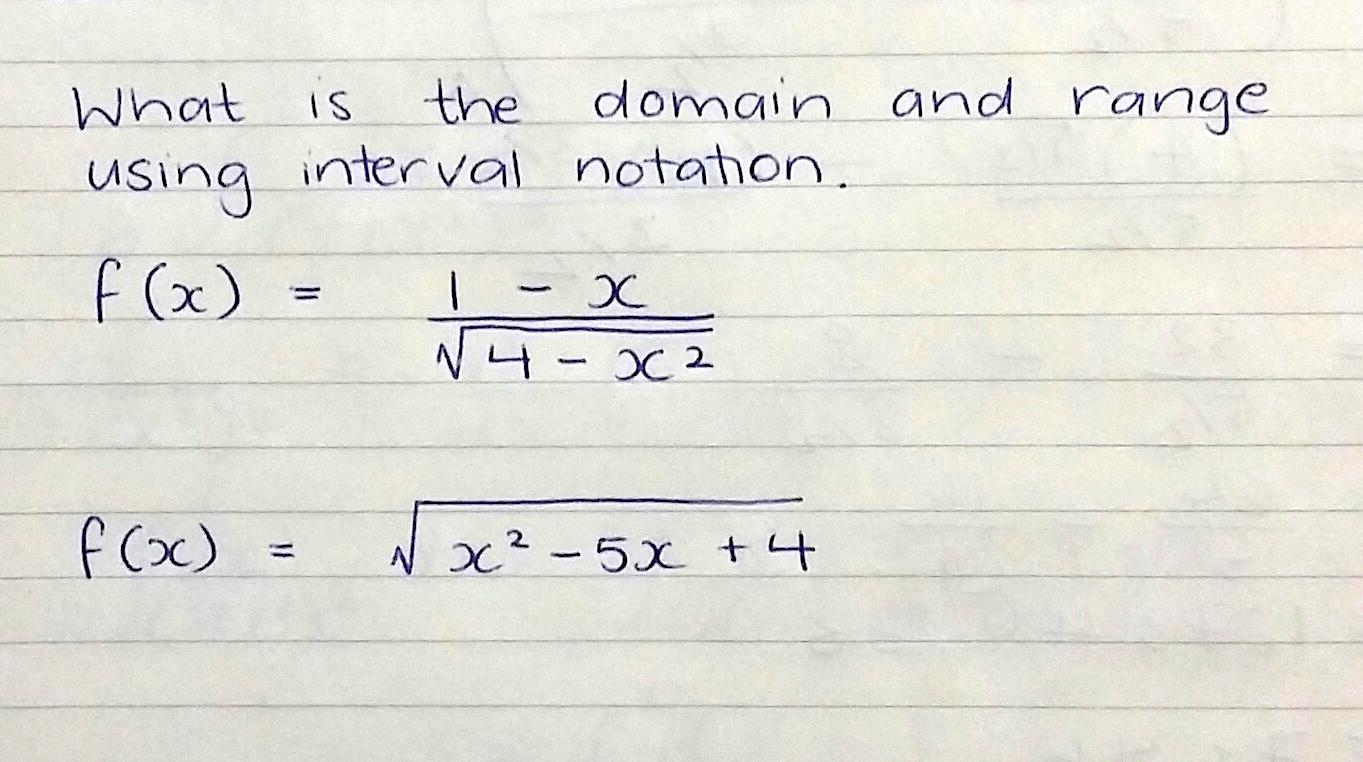 What is the domain and range
using interval notation.
f(x) = 1 - x
√4 - x²
f(x) = √x² - 5x + 4